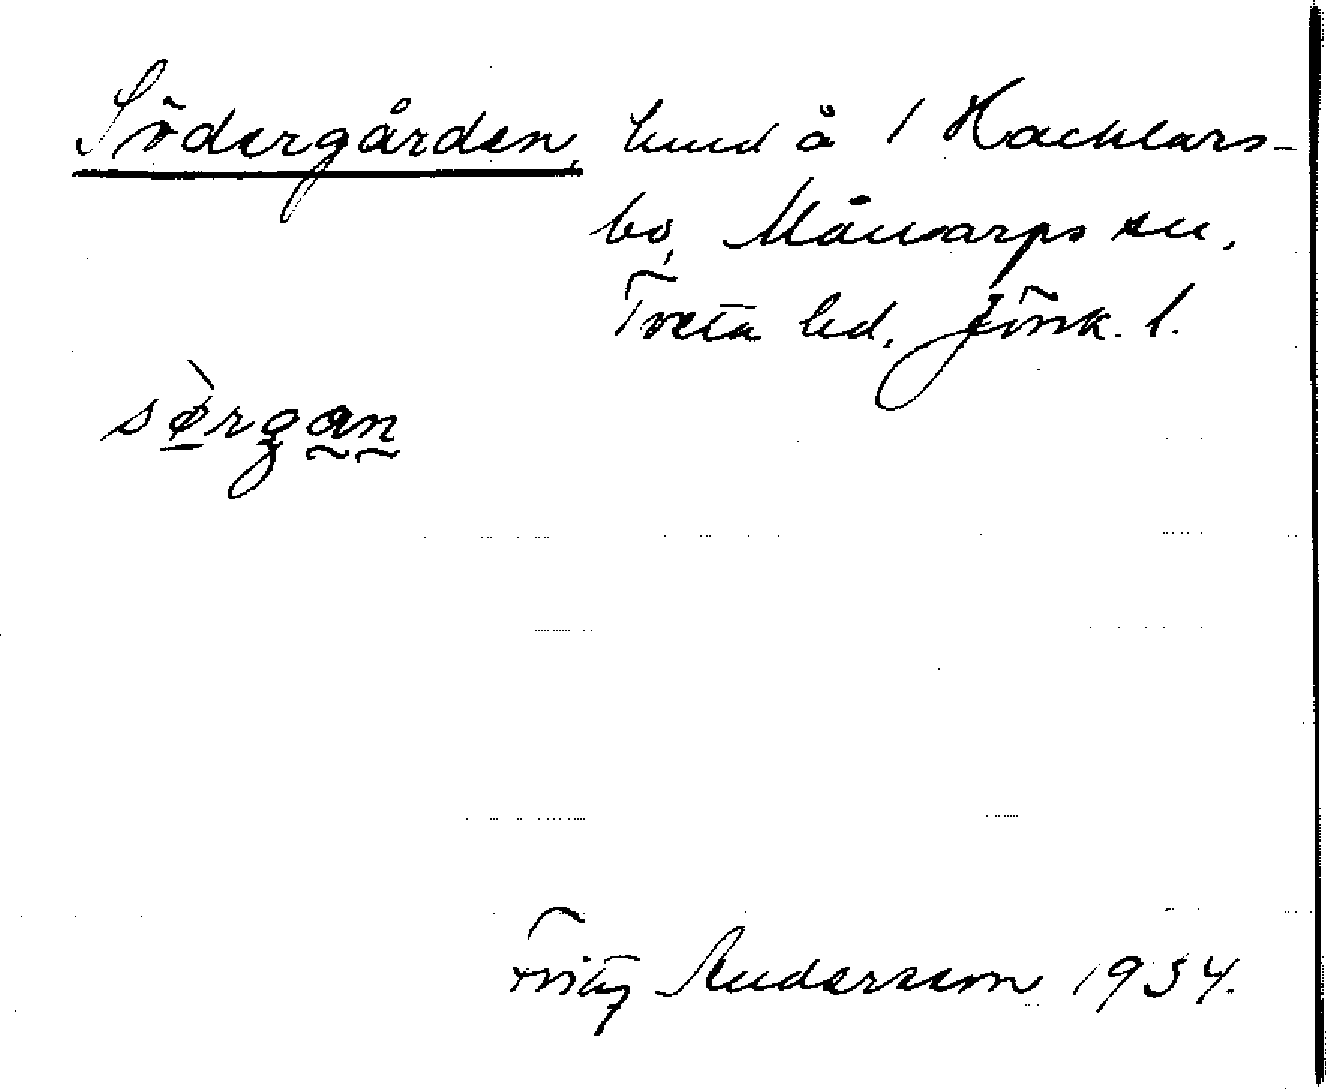 Södergården, hmd å 1 Hacklars-
bo, Månsarps sn,
Tveta hd, Jönk. l.
sø̀rgan
Fritz Andersson 1934.